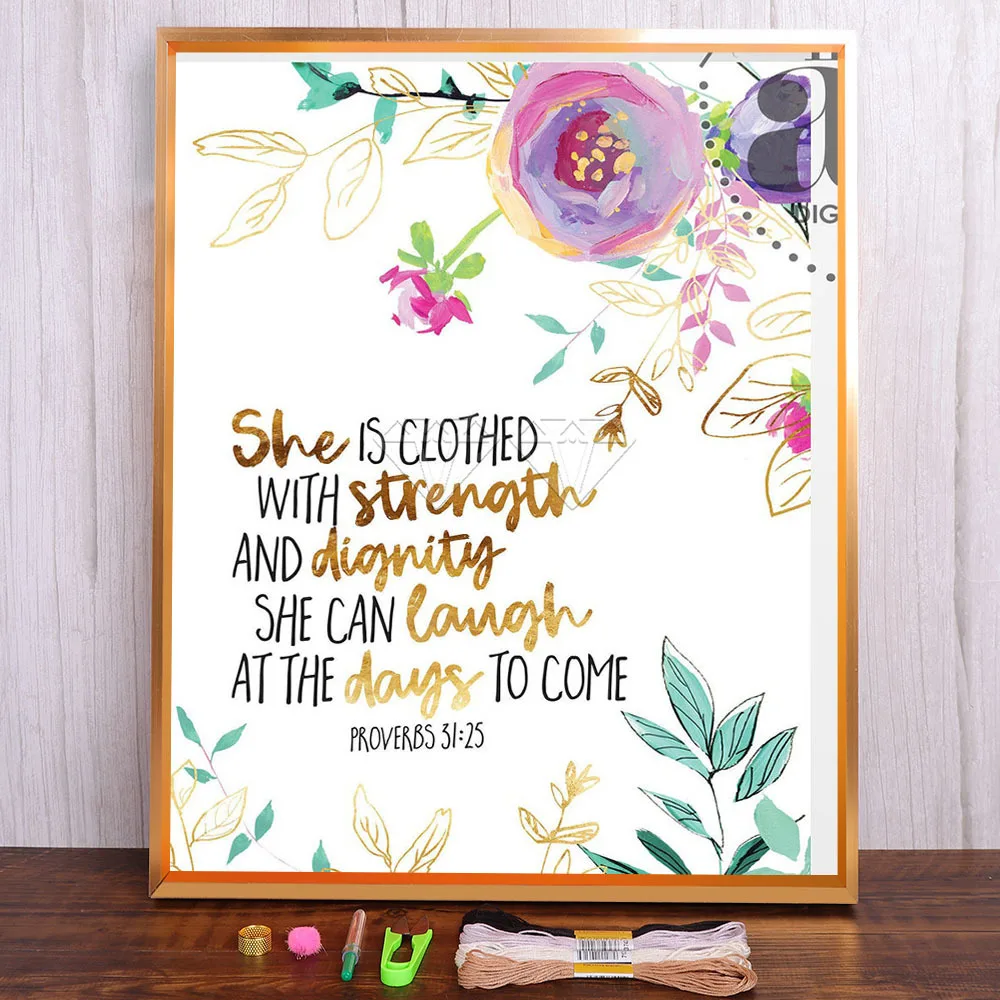 a
DIG
She IS CLOTHED
WITH strength
AND dignity
SHE CAN laugh
AT THE days TO COME
PROVERBS 31:25